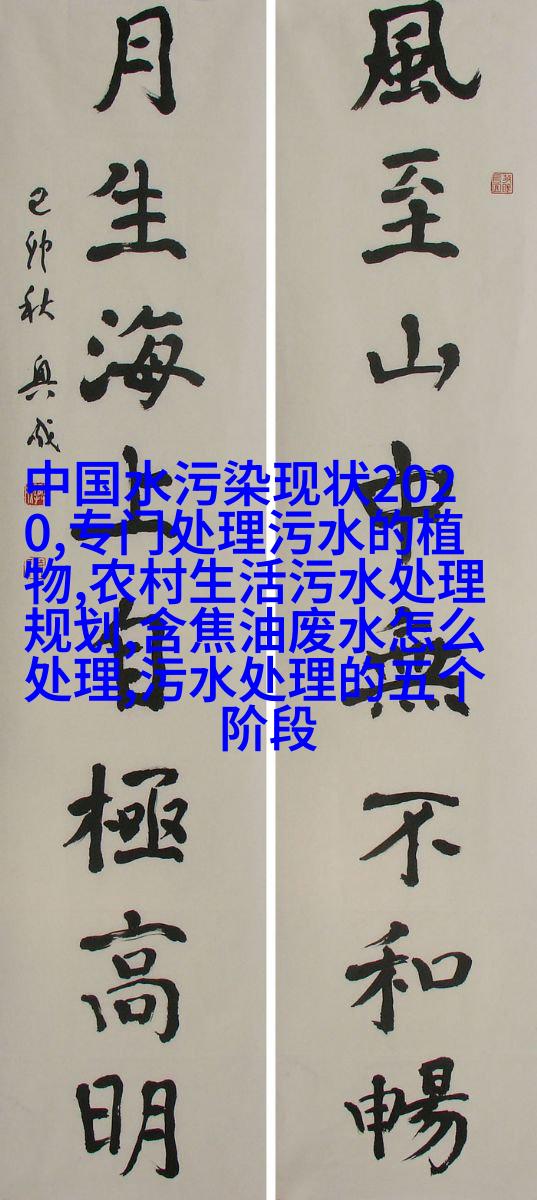 風至山中無不和暢
月生海上自極高明
己卯秋
中国水污染现状202
0,专门处理污水的植
物,农村生活污水处理
规划,含焦油废水怎么
处理,污水处理的五个
阶段